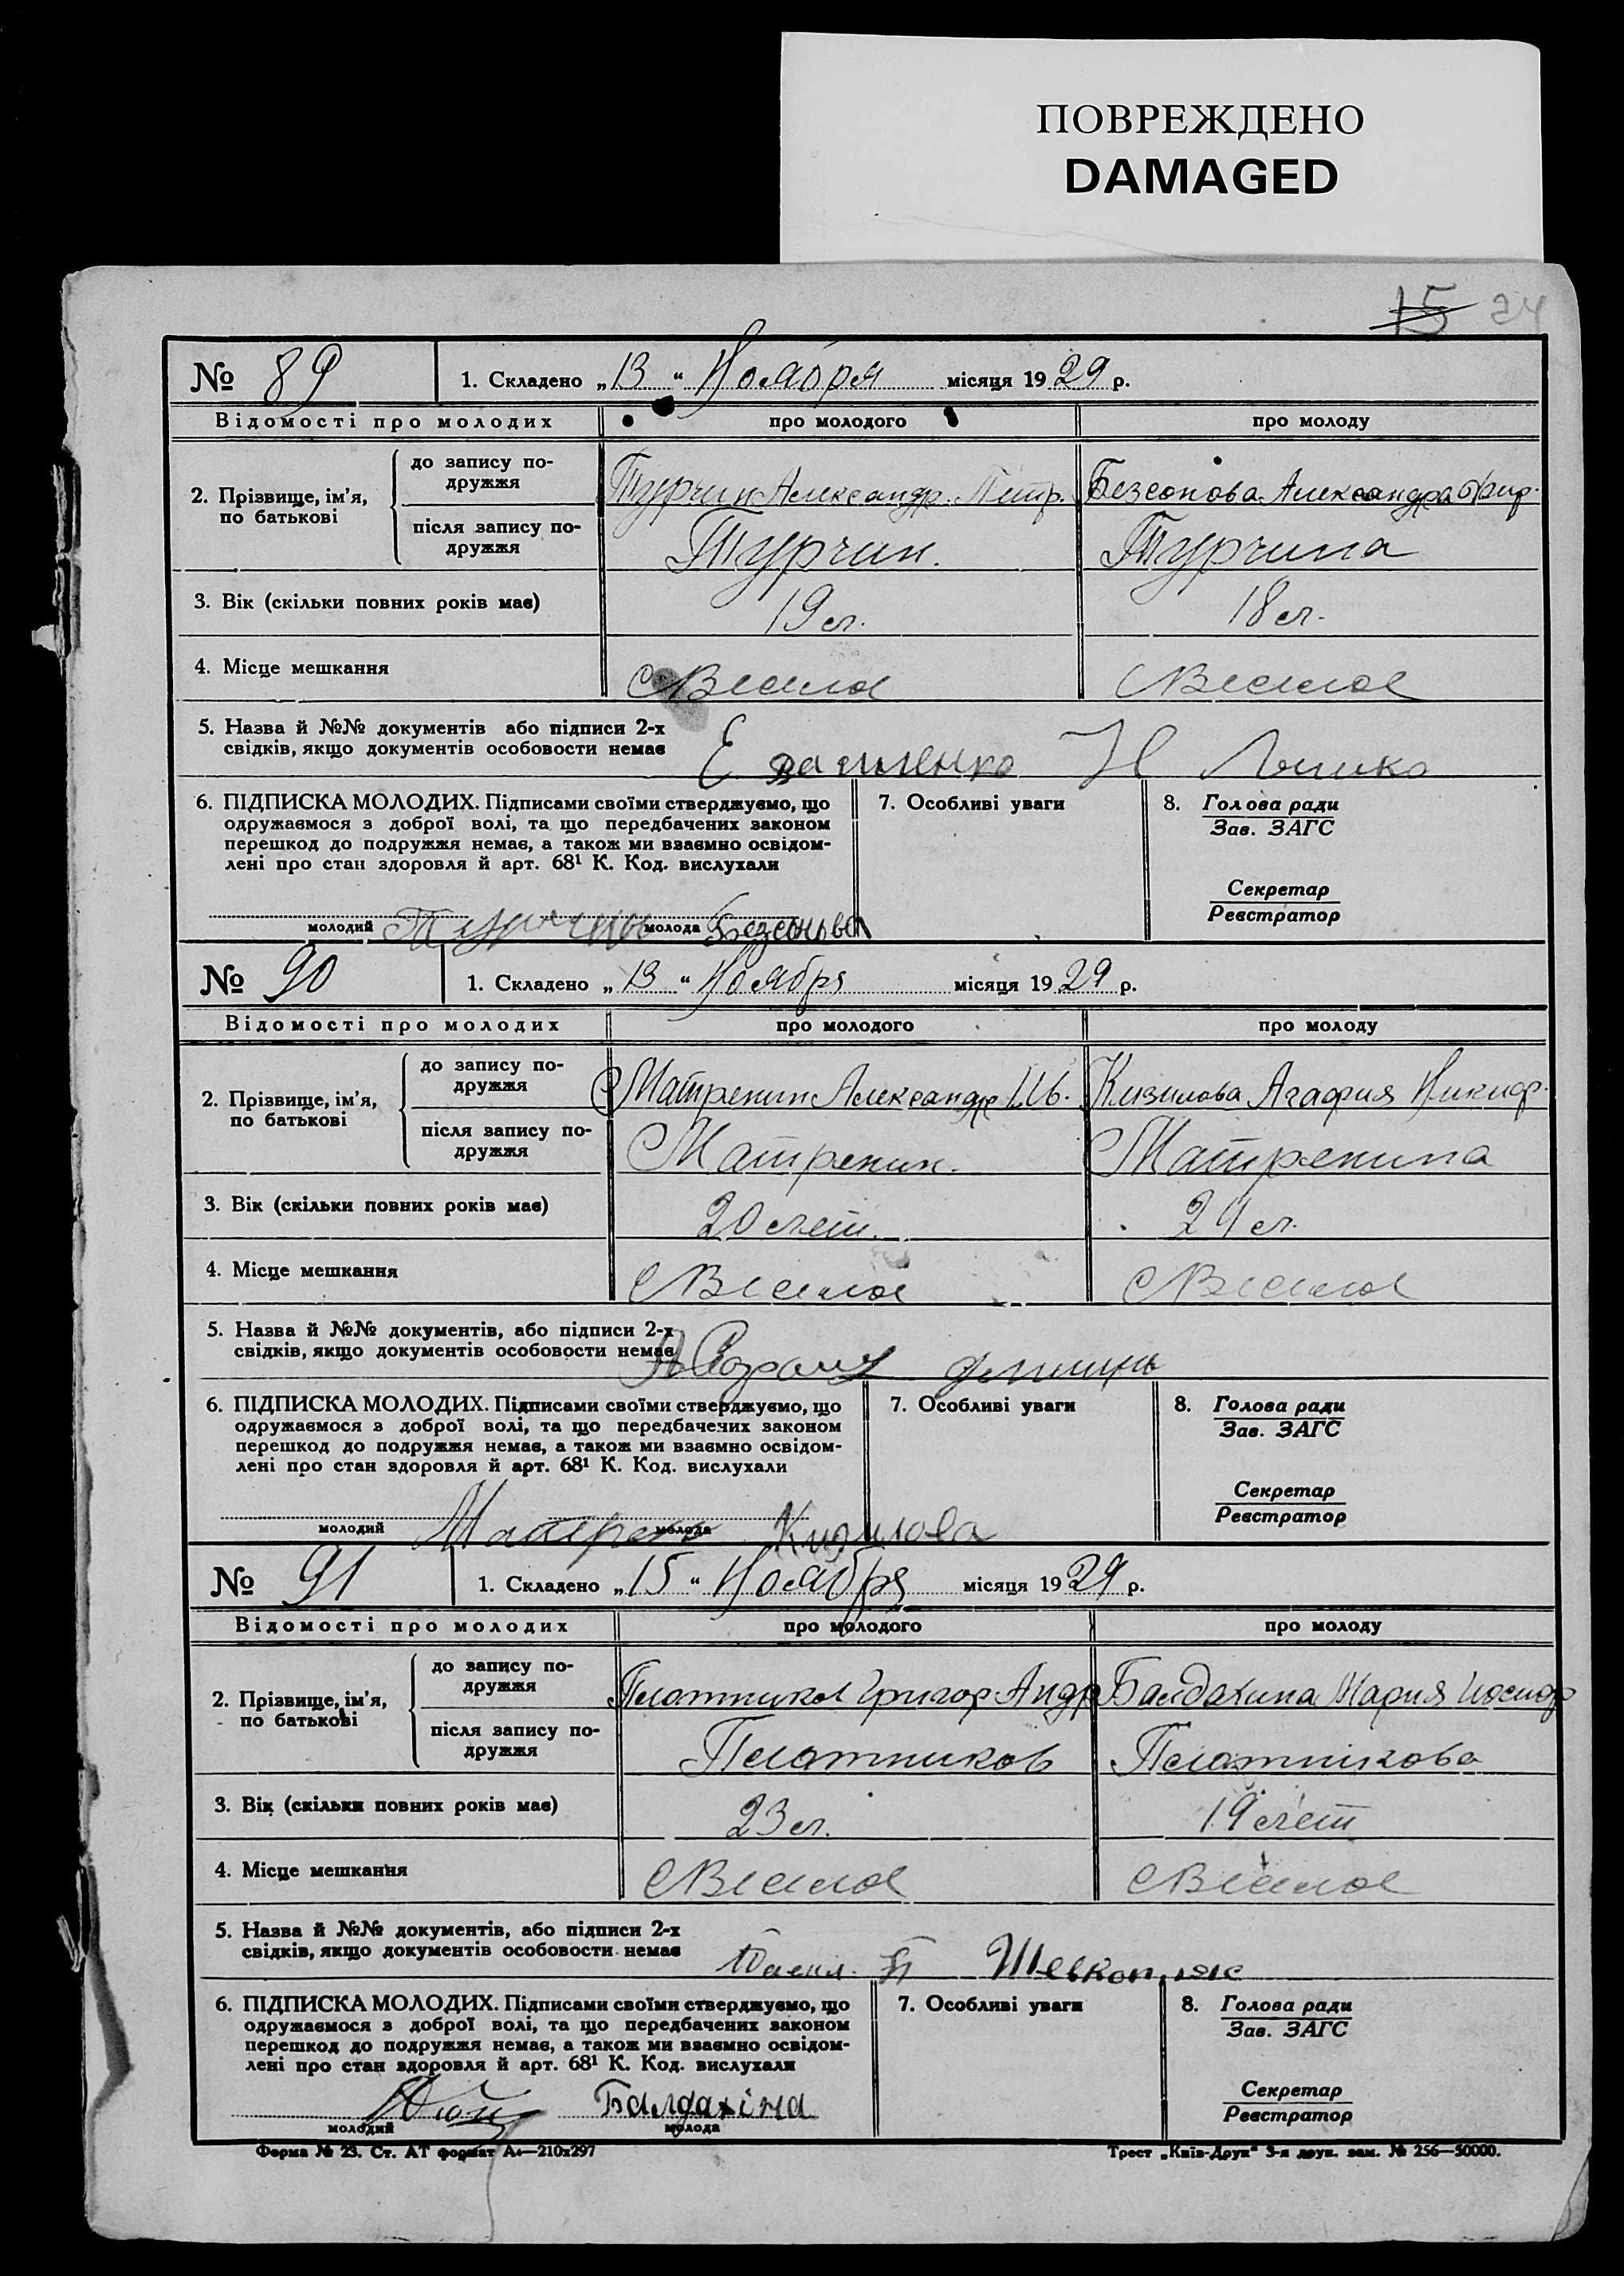 ПОВРЕЖДЕНО
DAMAGED
15 24
№ 89 1. Складено „13“ Ноября місяця 1929 р.
Відомості про молодих про молодого про молоду
2. Прізвище, ім’я, по батькові
до запису по-
дружжя
Турчин Александр Петр. Безсонова Александра
після запису по-
дружжя
Турчин. Турчина
3. Вік (скільки повних років має) 19 л. 18 л.
4. Місце мешкання
5. Назва й №№ документів або підписи 2-х
свідків, якщо документів особовости немає
6. ПІДПИСКА МОЛОДИХ. Підписами своїми стверджуємо, що
одружаємося з доброї волі, та що передбачених законом
перешкод до подружжя немає, а також ми взаємно освідом-
лені про стан здоровля й арт. 68¹ К. Код. вислухали
7. Особливі уваги
8. Голова ради
Зав. ЗАГС
Секретар
Реєстратор
молодий молода Безсонова
№ 90 1. Складено „13“ Ноября місяця 1929 р.
Відомості про молодих про молодого про молоду
2. Прізвище, ім’я, по батькові
до запису по-
дружжя
Матренин Александр Ив. Кизилова Агафия Никиф.
після запису по-
дружжя
Матренин. Матренина
3. Вік (скільки повних років має) 20 лет. л.
4. Місце мешкання
5. Назва й №№ документів, або підписи 2-х
свідків, якщо документів особовости немає
6. ПІДПИСКА МОЛОДИХ. Підписами своїми стверджуємо, що
одружаємося з доброї волі, та що передбачених законом
перешкод до подружжя немає, а також ми взаємно освідом-
лені про стан здоровля й арт. 68¹ К. Код. вислухали
7. Особливі уваги
8. Голова ради
Зав. ЗАГС
Секретар
Реєстратор
молодий молода Кизилова
№ 91 1. Складено „15“ Ноября місяця 1929 р.
Відомості про молодих про молодого про молоду
2. Прізвище, ім’я, по батькові
до запису по-
дружжя
Плотников Григор. Андр Балдахина Мария Иосиф
після запису по-
дружжя
Плотников Плотникова
3. Вік (скільки повних років має) 23 л. 19 лет
4. Місце мешкання
5. Назва й №№ документів, або підписи 2-х
свідків, якщо документів особовости немає
6. ПІДПИСКА МОЛОДИХ. Підписами своїми стверджуємо, що
одружаємося з доброї волі, та що передбачених законом
перешкод до подружжя немає, а також ми взаємно освідом-
лені про стан здоровля й арт. 68¹ К. Код. вислухали
7. Особливі уваги
8. Голова ради
Зав. ЗАГС
Секретар
Реєстратор
Балдахіна
молодий молода
Форма № 23. Ст. АТ формат А₄—210х297 Трест „Київ-Друк“ 3-я друк. зам. № 256—50000.